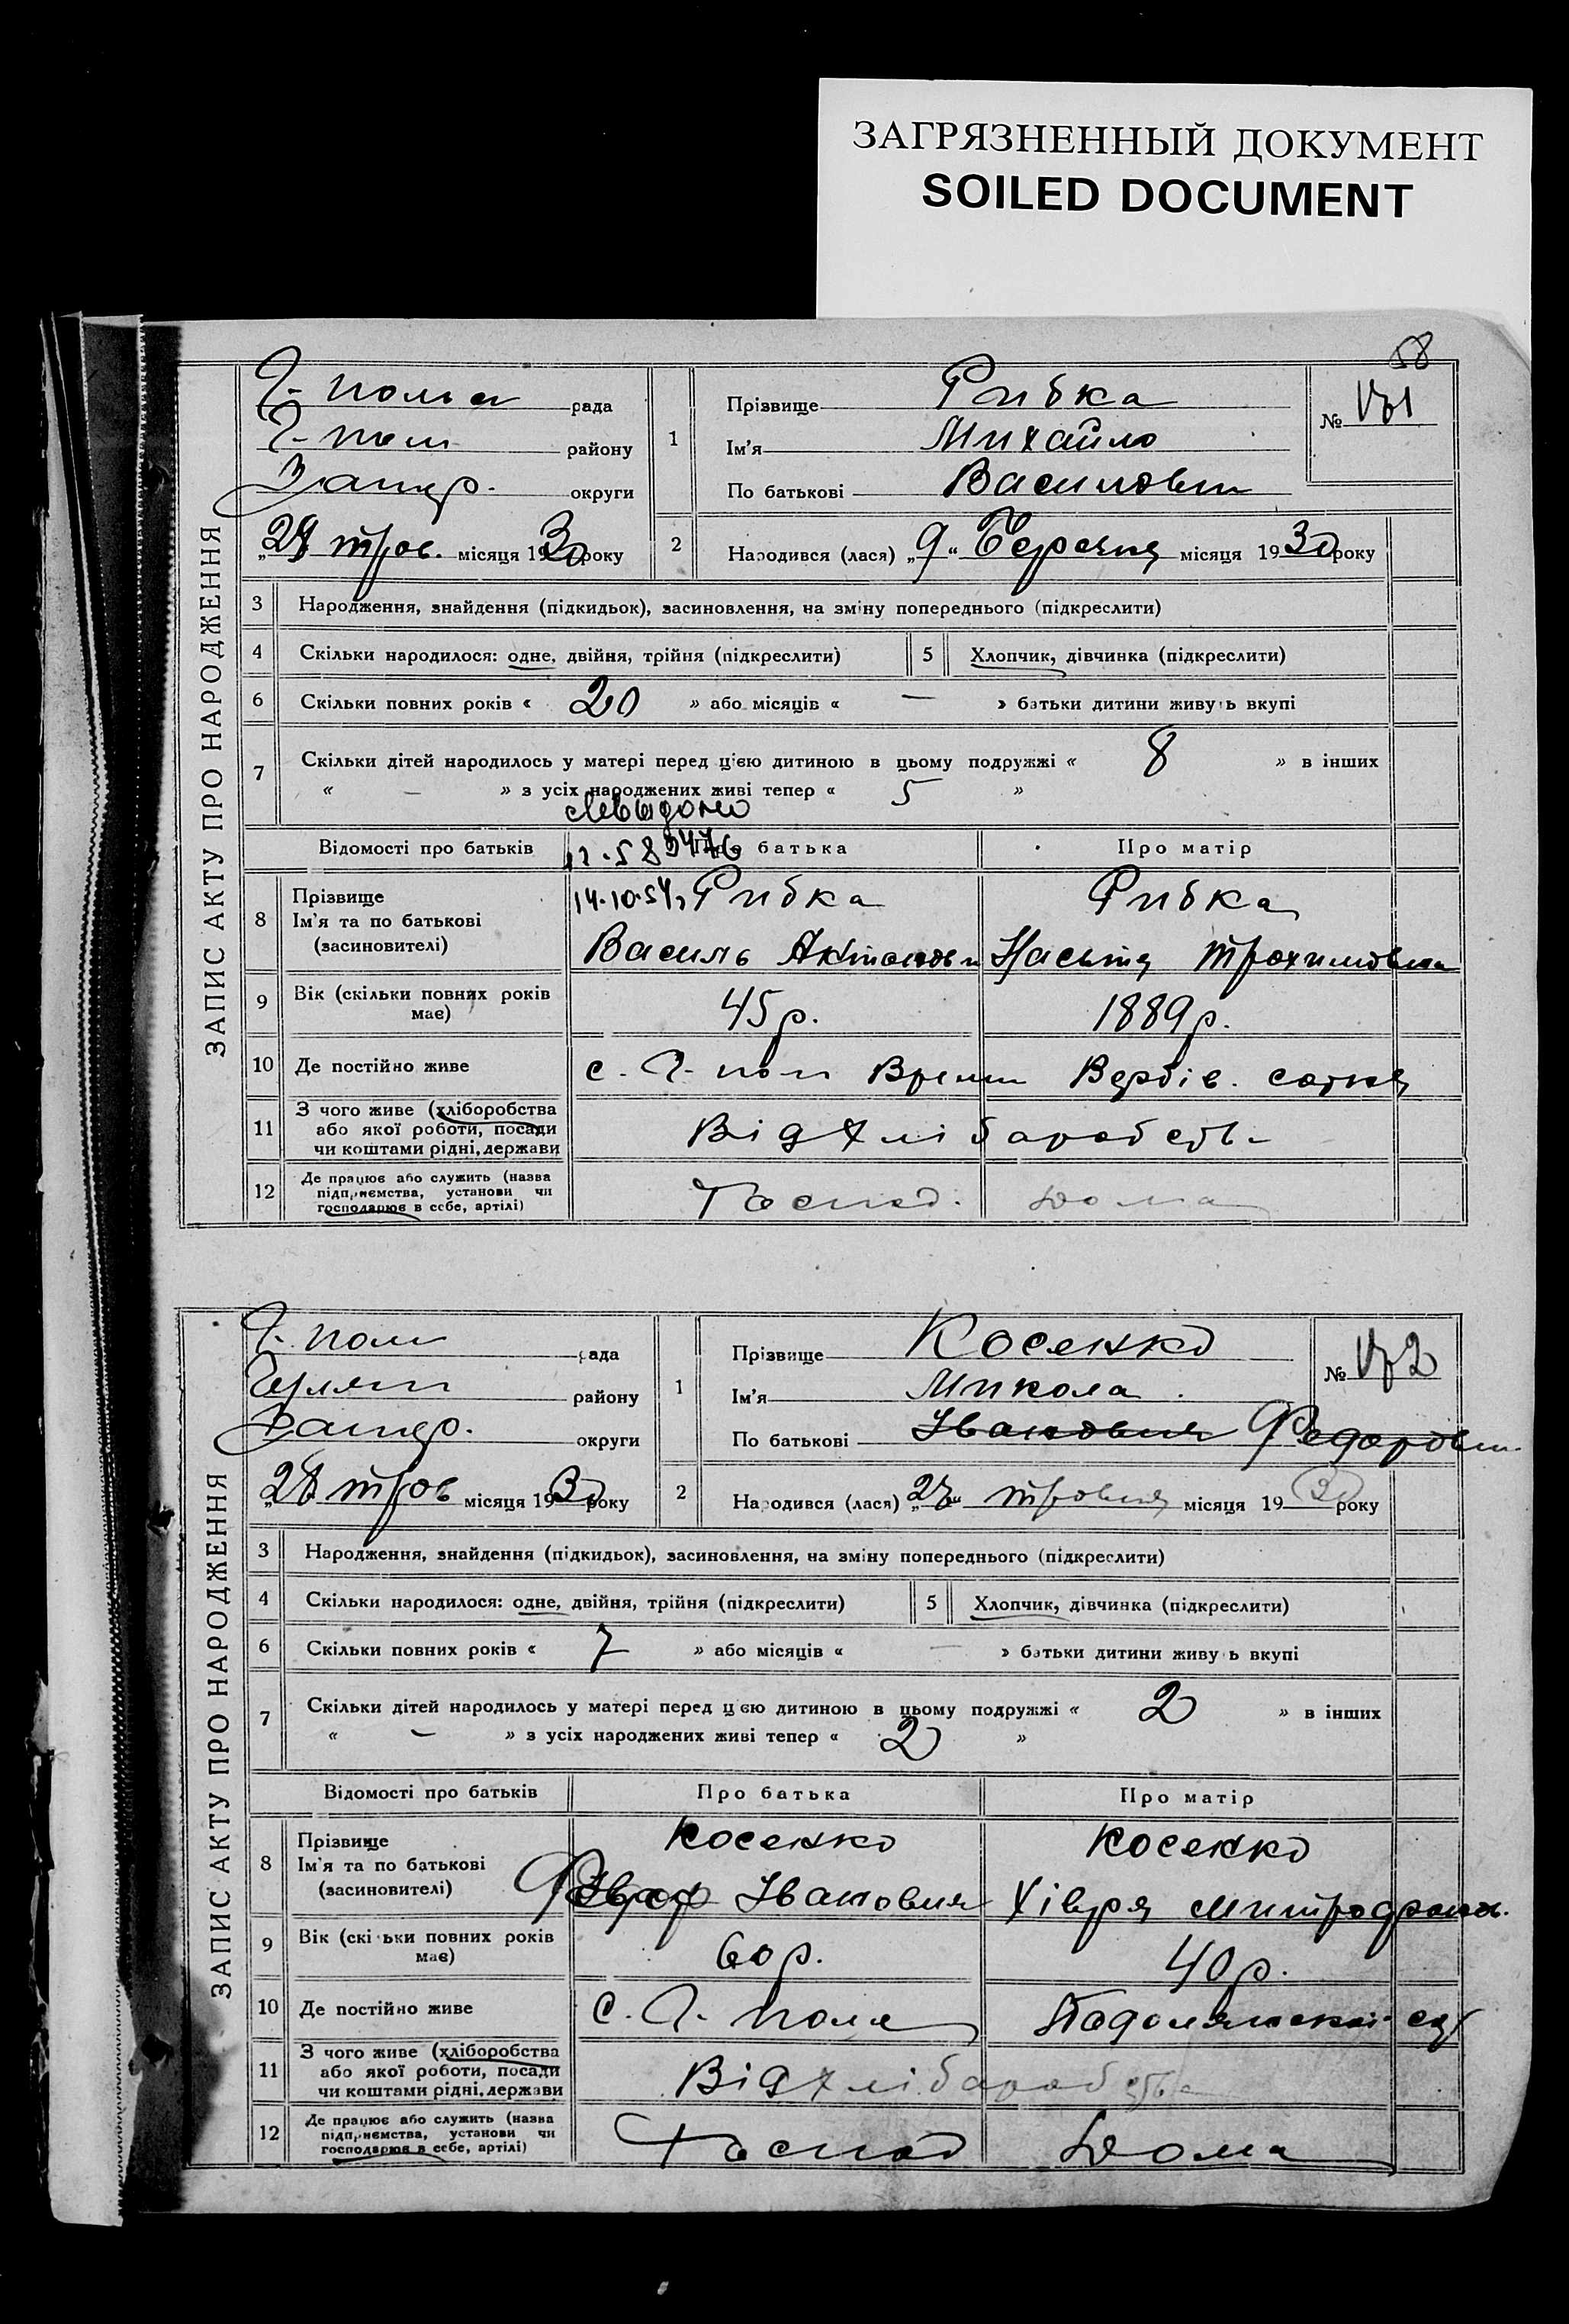 ЗАГРЯЗНЕННЫЙ ДОКУМЕНТ
SOILED DOCUMENT
58
ЗАПИС АКТУ ПРО НАРОДЖЕННЯ
Г-поль рада
Г-поль району
Запор. округи
„28 трав. місяця 1930 року
1
Прізвище Рибка
Ім'я Михайло
По батькові Василович
№
2
Народився (лася) „9" Березня місяця 1930 року
3 Народження, знайдення (підкидьок), засиновлення, на зміну попереднього (підкреслити)
4 Скільки народилося: одне, двійня, трійня (підкреслити)
5 Хлопчик, дівчинка (підкреслити)
6 Скільки повних років « 20 » або місяців « — » батьки дитини живуть вкупі
7 Скільки дітей народилось у матері перед цією дитиною в цьому подружжі « 8 » в інших
« — » з усіх народжених живі тепер « 5 »
Відомості про батьків
Про батька
Про матір
14.10.54
8 Прізвище
Ім'я та по батькові
(засиновителі)
Рибка
Василь
Рибка
Настя Трохимовна
9 Вік (скільки повних років
має)
45 р.
1889 р.
10 Де постійно живе
с. Г-поль Вербів. сотня
11 З чого живе (хліборобства
або якої роботи, посади
чи коштами рідні, держави
Від хліборобств
12 Де працює або служить (назва
підприємства, установи чи
господарює в себе, артілі)
Господ. дома
ЗАПИС АКТУ ПРО НАРОДЖЕННЯ
Г-поль рада
Гуляй району
Запор. округи
„28 трав місяця 1930 року
1
Прізвище Косенко
Ім'я Микола
По батькові Іванович Федорович
№
2
Народився (лася) „ " травня місяця 1930 року
3 Народження, знайдення (підкидьок), засиновлення, на зміну попереднього (підкреслити)
4 Скільки народилося: одне, двійня, трійня (підкреслити)
5 Хлопчик, дівчинка (підкреслити)
6 Скільки повних років « 7 » або місяців « — » батьки дитини живуть вкупі
7 Скільки дітей народилось у матері перед цією дитиною в цьому подружжі « 2 » в інших
« — » з усіх народжених живі тепер « 2 »
Відомості про батьків
Про батька
Про матір
8 Прізвище
Ім'я та по батькові
(засиновителі)
Косенко
Федор Іванович
Косенко
Хівря Митрофанов.
9 Вік (скільки повних років
має)
60 р.
40 р.
10 Де постійно живе
с. Г-поле
11 З чого живе (хліборобства
або якої роботи, посади
чи коштами рідні, держави
Від хліборобства
12 Де працює або служить (назва
підприємства, установи чи
господарює в себе, артілі)
Господ дома